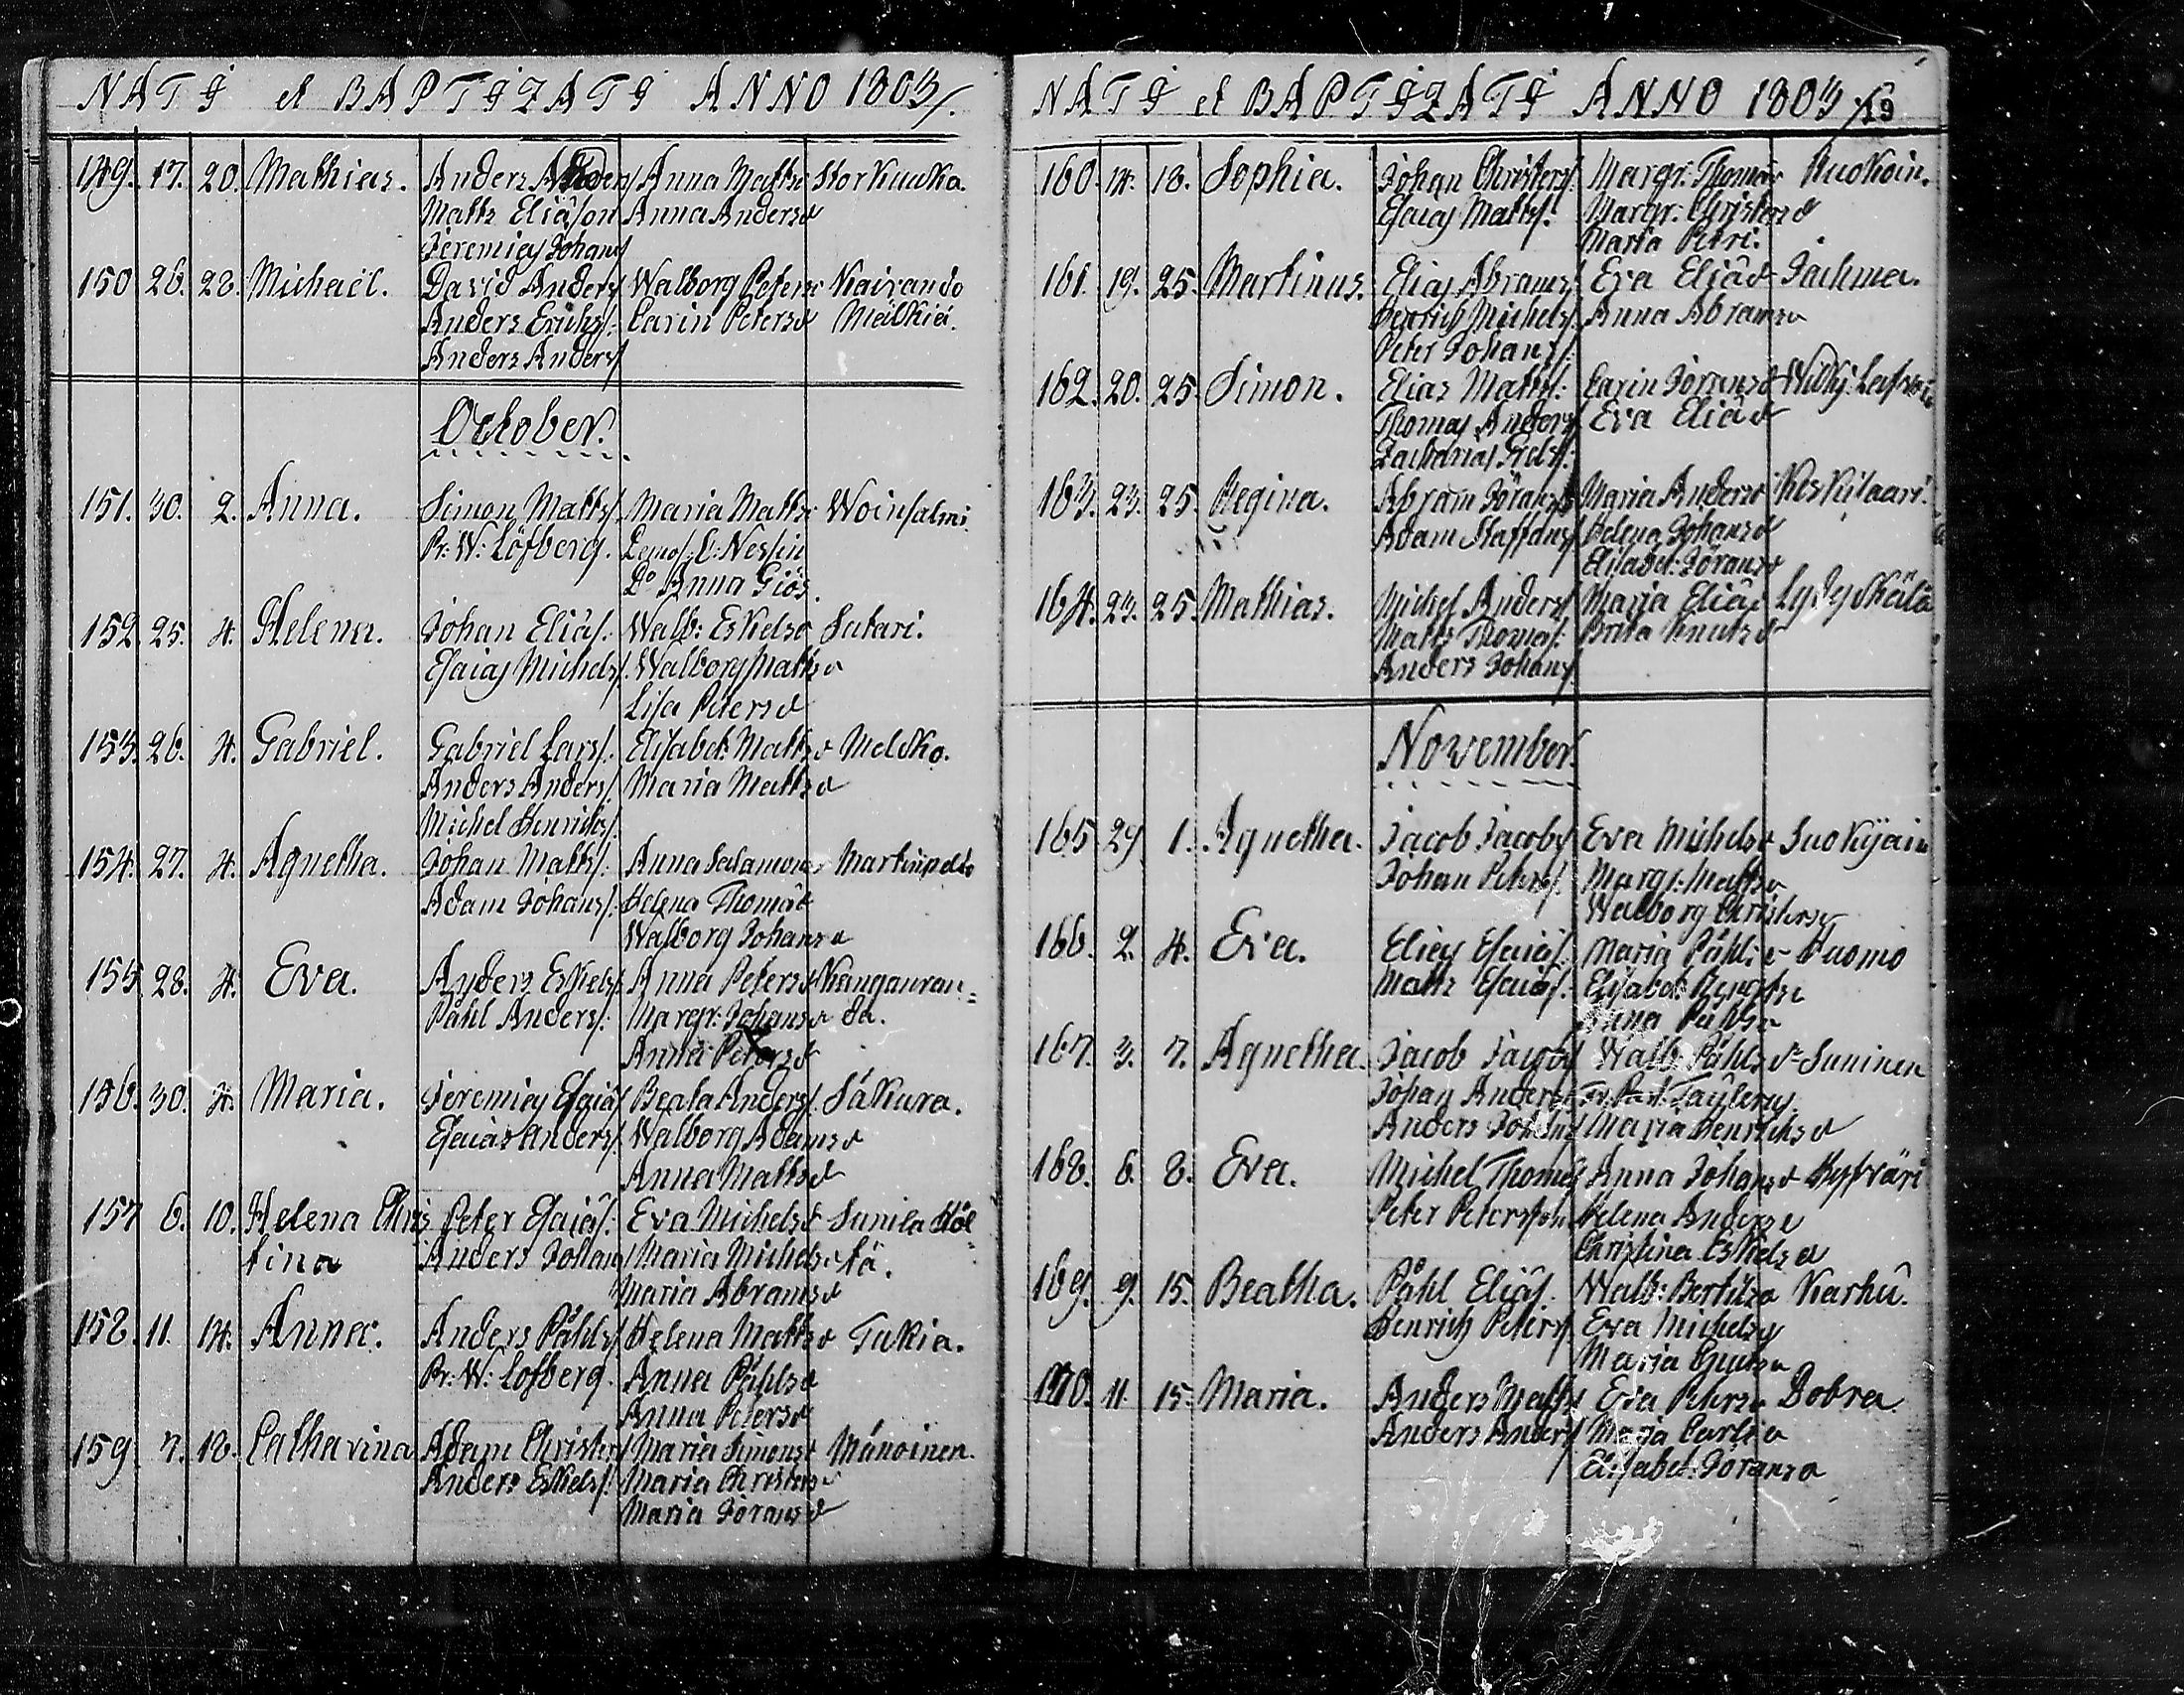 NATI et BAPTIZATI ANNO 1803/.
149. 17. 20. Mathias. Anders Anders/ Anna Mattsd Storkuuka.
Matts Eliâson Anna Andersd
Jeremias Johans/
150 26. 28. Michaël. David Anders/ Walborg Petersd Kairando
Anders Erichs/: Carin Petersd Mälkiä.
Anders Anders/
October.
151. 30. 2. Anna. Simon Matts/. Maria Mattsd Woinsalmi
Pr: W: Löfberg. Demos: C: Neslin
Do Anna Giös.
152 25. 4. Helena. Johan Eliâs/: Walb: Eskelsd Satari.
Esaias Michels/. Walborg Mattsd
Lisa Petersd
153. 26. 4. Gabriel. Gabriel Lars/: Elisabet: Mattsd Melsko.
Anders Anders/. Maria Mattsd
Michel Henrichs/.
154. 27. 4. Agnetha. Johan Matts/: Anna Salamonsd Martinpelto
Adam Johans/: Helena Thomâd
Walborg Johansd
155 28. 4. Eva. Anders Eskels/: Anna Petersd Kangasran=
Påhl Anders/: Margr: Johansd da.
Anna Petersd
156. 30. 4. Maria. Jeremias Esaiâ/ Beata Anders/. Säkura.
Esaias Anders/. Walborg Adamsd
Anna Mattsd
157 6. 10. Helena Chris Peter Esaiâs/: Eva Michelsd Sunila Höl=
tina Anders Johans/ Maria Michelsd tä.
Maria Abramsd
158. 11. 14. Anna. Anders Påhls/ Helena Mattsd Takia.
Pr: W: Lofberg. Anna Påhlsd
Anna Petersd
159. 7. 18. Catharina Adam Christers/ Maria Simonsd Mánoinen.
Anders Eskels/: Maria Christersd
Maria Göransd
NATI et BAPTIZATI ANNO 1803/.
160. 14. 18. Sophia. Johan Christers/: Margr: Thomâd Huokoin.
Esaias Matts/: Margr: Christersd
Maria Petri.
161. 19. 25. Martinus. Elias Abrams/ Eva Eliâd Jachma.
Henrich Michels/. Anna Abramsd
Peter Johans/:
162. 20. 25. Simon. Elias Matts/: Carin Göransd
Thomas Anders/ Eva Eliâd
Zacharias
163. 23. 25. Regina. Abram Görans/ Maria Andersd Keskilaari.
Adam Staffans/ Helena Johansd
Elisabet: Göransd
164. 23. 25. Mathias. Michel Anders/ Maria Eliâd
Matts Thomas/: Brita Knutsd
Anders Johans/.
November.
165 29 1. Agnetha. Jacob Jacobs/ Eva Michelsd Suokijain
Johan Peters/. Margr: Mattsd
Walborg Christersd
166. 2. 4. Eva. Elias Esaiâs/: Maria Påhlsd Suomo
Matts Esaiâs/: Elisabet: Bengtsd
Anna Påhlsd
167. 3. 7. Agnetha. Jacob Jacobs/ Walb: Påhlsd Suninen
Johan Anders/
Anders Johans/ Maria Henrichsd
168. 6. 8. Eva. Michel Thomâs/ Anna Johansd
Peter Peterson Helena Andersd
Christina Eskelsd
169. 9. 15. Beatha. Påhl Eliâs/. Walb: Bertilsd Karhu.
Henrich Peters/. Eva Michelsd
Maria
170. 11. 15. Maria. Anders Matts/ Eva Petersd Dobra.
Anders Anders/ Maria Carlsd
Elisabet: Göransd